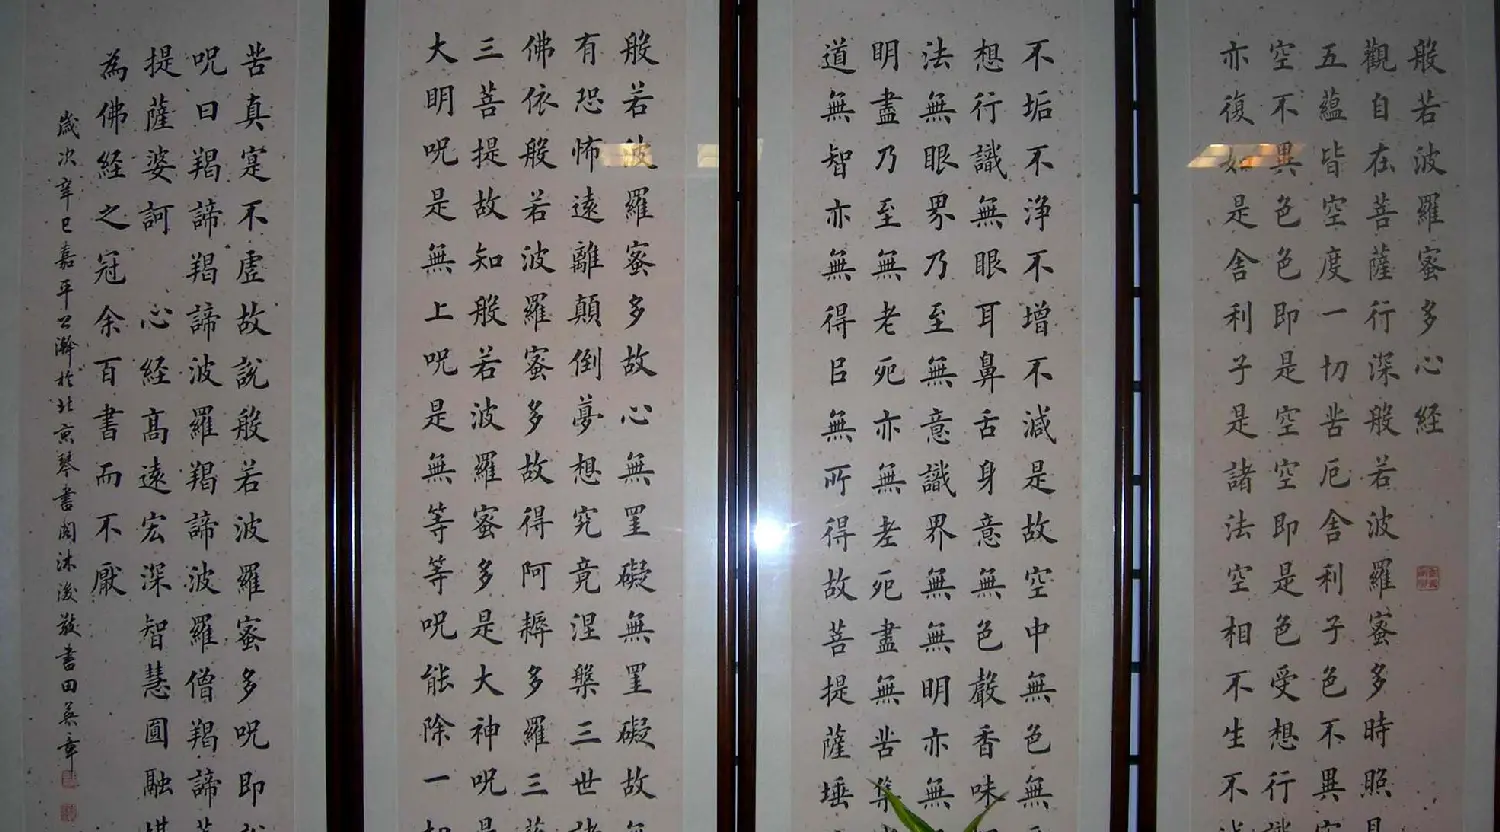 般若波羅蜜多心経
觀自在菩薩行深般若波羅蜜多時照見
五蘊皆空度一切苦厄舍利子色不異空
空不異色色即是空空即是色受想行識
亦復如是舍利子是諸法空相不生不
不垢不浄不増不減是故空中無色無
想行識無眼耳鼻舌身意無色聲香味
法無眼界乃至無意識界無無明亦無
明盡乃至無老死亦無老死盡無苦集
道無智亦無得㠯無所得故菩提薩埵
般若波羅蜜多故心無罣礙無罣礙故無
有恐怖遠離顛倒夢想究竟涅槃三世諸
佛依般若波羅蜜多故得阿耨多羅三
三菩提故知般若波羅蜜多是大神呪是
大明呪是無上呪是無等等呪能除一
苦真寔不虛故說般若波羅蜜多呪即
呪曰羯諦羯諦波羅羯諦波羅僧羯諦
提薩婆訶 心経高遠宏深智慧圓融
為佛経之冠余百書而不厭
歲次辛巳嘉平公瀚於北京琴書閣沐後敬書田英章